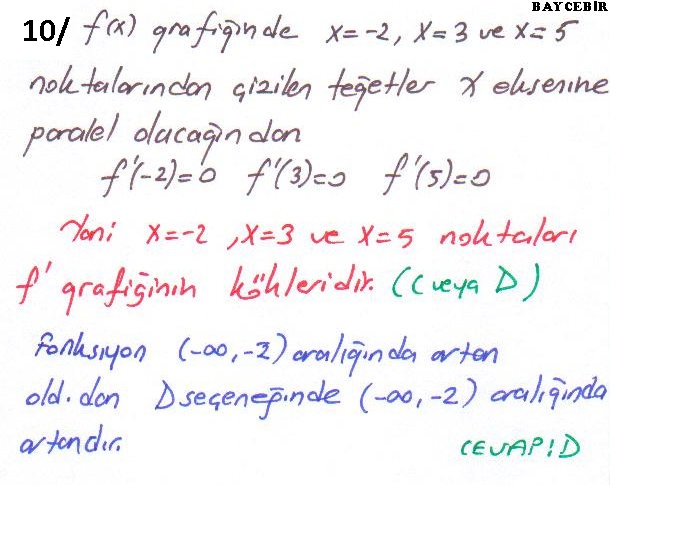 BAYCEBİR
10/ f(x) grafiğinde x=-2, x=3 ve x=5
noktalarından çizilen teğetler x eksenine
paralel olacağından
f'(-2)=0 f'(3)=0 f'(5)=0
Yani x=-2, x=3 ve x=5 noktaları
f' grafiğinin kökleridir. (C veya D)
Fonksiyon (-∞,-2) aralığında artan
old.dan D seçeneğinde (-∞,-2) aralığında
artandır.
CEVAP:D